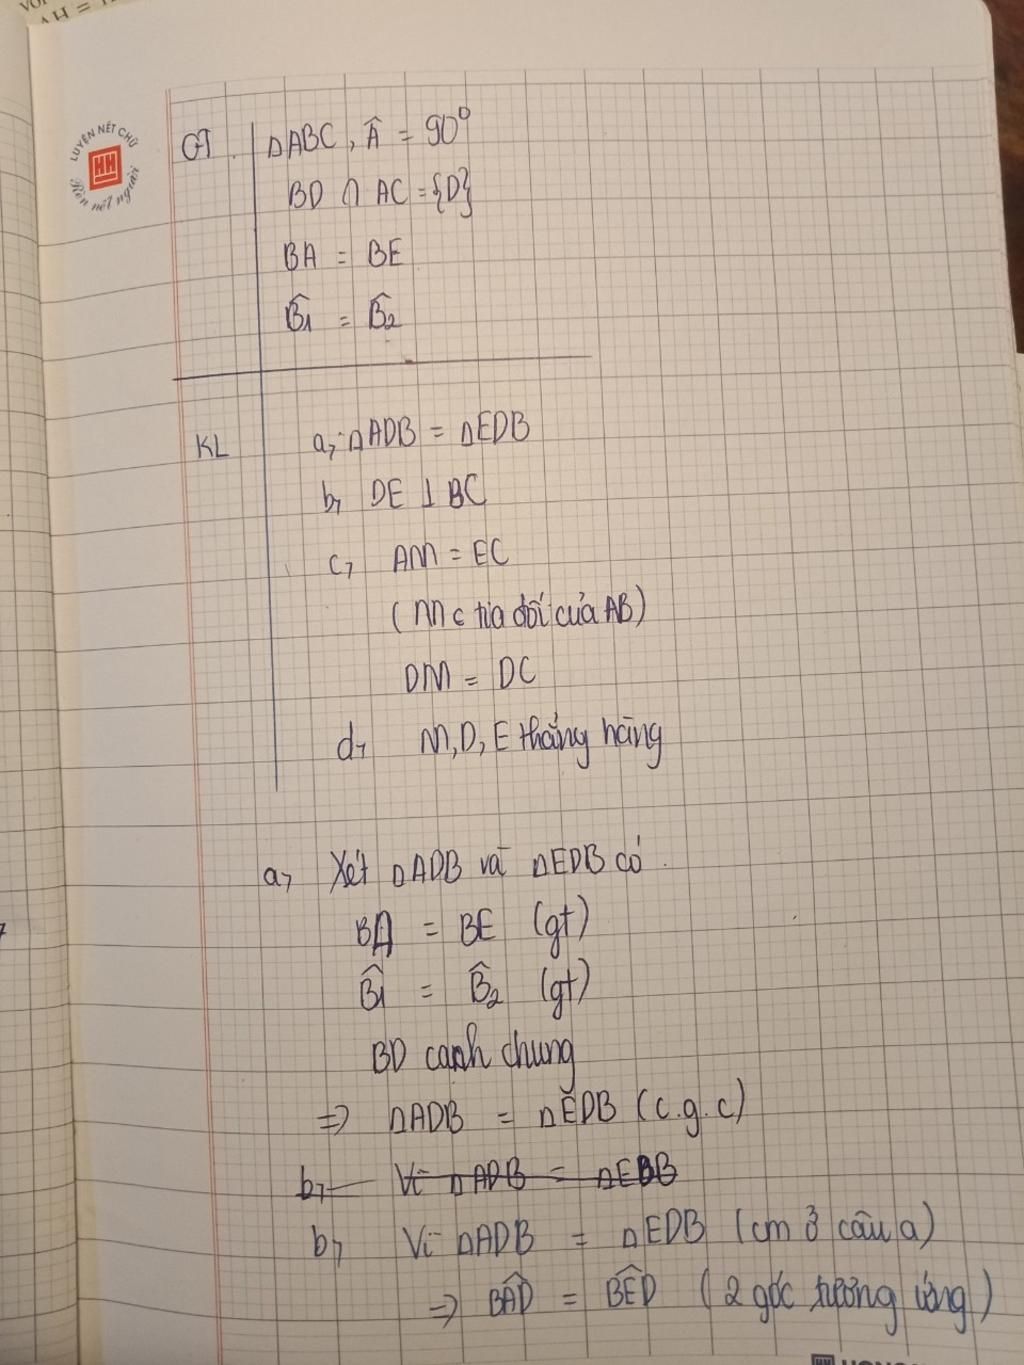 AH =
LUYỆN NẾT CHỮ
HH
Rèn nết người
GT ΔABC, Â = 90°
BD ∩ AC = {D}
BA = BE
B̂1 = B̂2
KL a, ΔADB = ΔEDB
b, DE ⊥ BC
c, AM = EC
(M ∈ tia đối của AB)
DM = DC
d, M, D, E thẳng hàng
a, Xét ΔADB và ΔEDB có
BA = BE (gt)
B̂1 = B̂2 (gt)
BD cạnh chung
=> ΔADB = ΔEDB (c.g.c)
b, Vì ΔADB = ΔEDB
b, Vì ΔADB = ΔEDB (cm ở câu a)
=> BÂD = BÊD (2 góc tương ứng)